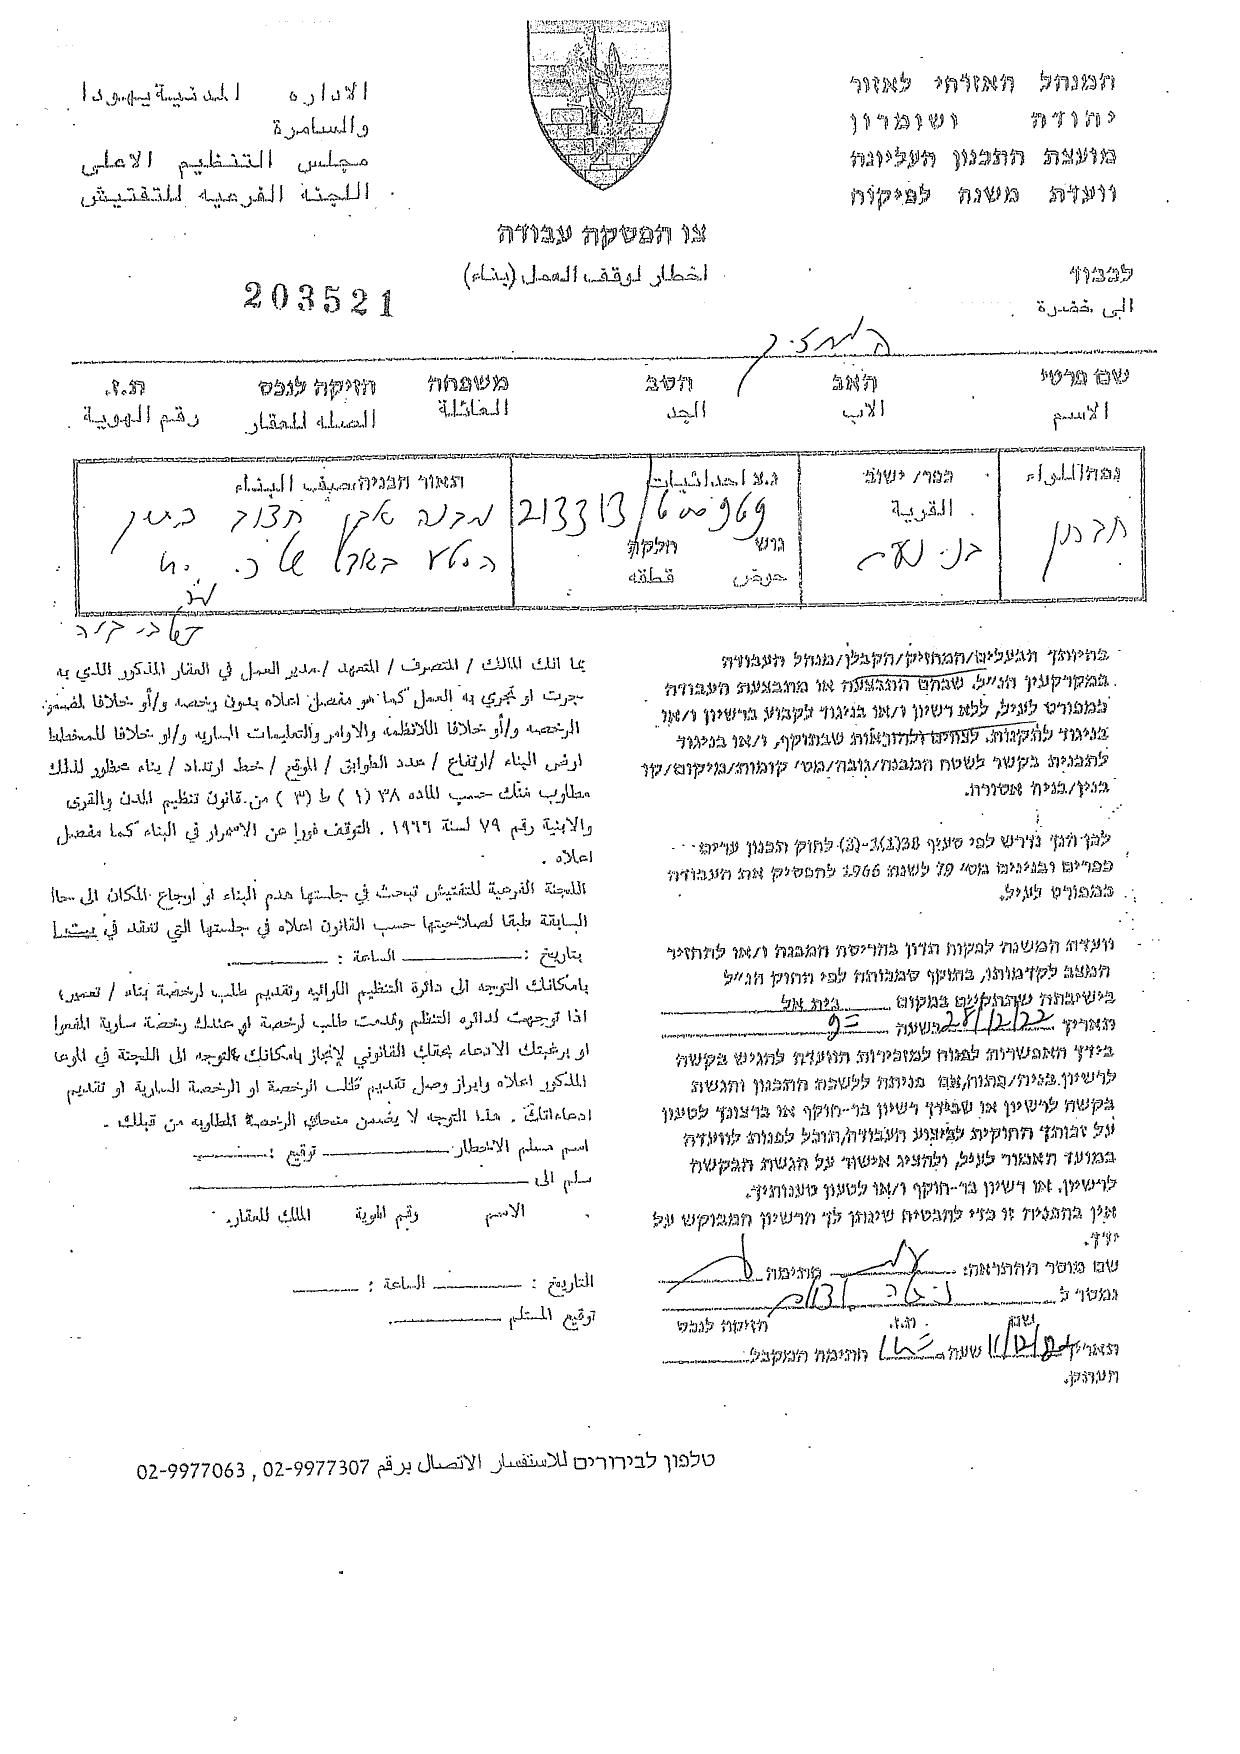 המנהל האזרחי לאזור
יהודה ושומרון
מועצת התכנון העליונה
וועדת משנה לפיקוח
الاداره المدنية يهودا
والسامرة
مجلس التنظيم الاعلى
اللجنة الفرعيه للتفتيش
צו הפסקת עבודה
اخطار لوقف العمل (بناء)
203521
לכבוד
الى حضرة
המחזיק
שם פרטי האב הסב משפחה חזיקה לנכס ת.ז.
الاسم الاب الجد العائلة الصله للعقار رقم الهوية
נפה اللواء
חברון
כפר/ ישוב
القرية
בני נעים
נ.צ احداثيات
213313/600969
גוש חלקה
حوض قطعه
תאור הבניה وصيف البناء
מבנה אבן חצוב
בהיותך הבעלים/המחזיק/הקבלן/מנהל העבודה
במקרקעין הנ״ל, שבהם התבצעה או מתבצעת העבודה
כמפורט לעיל, ללא רשיון ו/או בניגוד לקבוע ברשיון ו/או
בניגוד לתקנות, לצווים ולהוראות שבתוקף, ו/או בניגוד
לתכנית בקשר לשטח המבנה/גובה/מס׳ קומות/מיקום/קו
בנין/בניה אסורה.
לכן הנך נדרש לפי סעיף 38(1)-(3) לחוק תכנון ערים
כפרים ובנינים מס׳ 79 לשנת 1966 להפסיק את העבודה
כמפורט לעיל.
וועדת המשנה לפקוח תדון בהריסת המבנה ו/או להחזיר
המצב לקדמותו, בתוקף סמכותה לפי החוק הנ״ל
בישיבתה שתתקיים במקום בית אל
תאריך 28/12/22 בשעה 9=
בידך האפשרות לפנות למזכירות הוועדה להגיש בקשה
לרשיון בניה/פתוח, אם פניתה ללשכת התכנון והגשת
בקשה לרשיון או שבידך רשיון בר-תוקף או ברצונך לטעון
על זכותך החוקית לביצוע העבודה, תוכל לפנות לוועדה
במועד האמור לעיל, ולהציג אישור על הגשת הבקשה
לרשיון, או רשיון בר-תוקף ו/או לטעון טענותיך.
אין בהפניה זו כדי להבטיח שינתן לך הרשיון המבוקש על
ידך.
שם מוסר ההתראה: חתימה
נמסר ל
שם ת.ז. חזיקה לנכס
תאריך שעה חתימת המקבל
העתק.
بما انك المالك / المتصرف / المتعهد / مدير العمل في العقار المذكور الذي به
جرت او تجري به العمل كما هو مفصل اعلاه بدون رخصه و/أو خلافا لمضمون
الرخصه و/أو خلافا للانظمه والاوامر والتعليمات الساريه و/او خلافا للمخطط
ارض البناء /ارتفاع / عدد الطوابق / الموقع / خط ارتداد / بناء محظور لذلك
مطلوب منك حسب الماده ٣٨ (١) ط (٣) من قانون تنظيم المدن والقرى
والابنية رقم ٧٩ لسنة ١٩٦٦ . التوقف فورا عن الاستمرار في البناء كما مفصل
اعلاه .
اللجنة الفرعية للتفتيش تبحث في جلستها هدم البناء او ارجاع المكان الى
السابقة طبقا لصلاحيتها حسب القانون اعلاه في جلستها التي تنعقد في
بتاريخ : الساعة :
بامكانك التوجه الى دائرة التنظيم اللوائيه وتقديم طلب لرخصة بناء / تعمير،
اذا توجهت لدائره التنظم وقدمت طلب لرخصة او عندك رخصة سارية المفعول
او برغبتك الادعاء بحقك القانوني لإنجاز بامكانك التوجه الى اللجنة في
المذكور اعلاه وابراز وصل تقديم طلب الرخصة او الرخصة السارية او تقديم
ادعاءاتك . هذا التوجه لا يضمن منحك الرخصة المطلوبه من قبلك .
اسم مسلم الاخطار توقيع :
سلم الى
الاسم رقم الهوية الملك للعقار.
التاريخ : الساعة :
توقيع المستلم
טלפון לבירורים للاستفسار الاتصال برقم 02-9977307 , 02-9977063